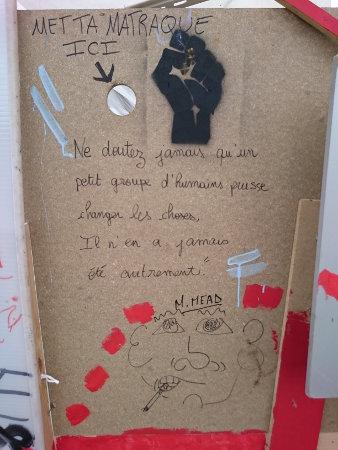 MET TA MATRAQUE
ICI
Ne doutez jamais qu'un
petit groupe d'humains puisse
changer les choses,
Il n'en a jamais
été autrement."
M. MEAD